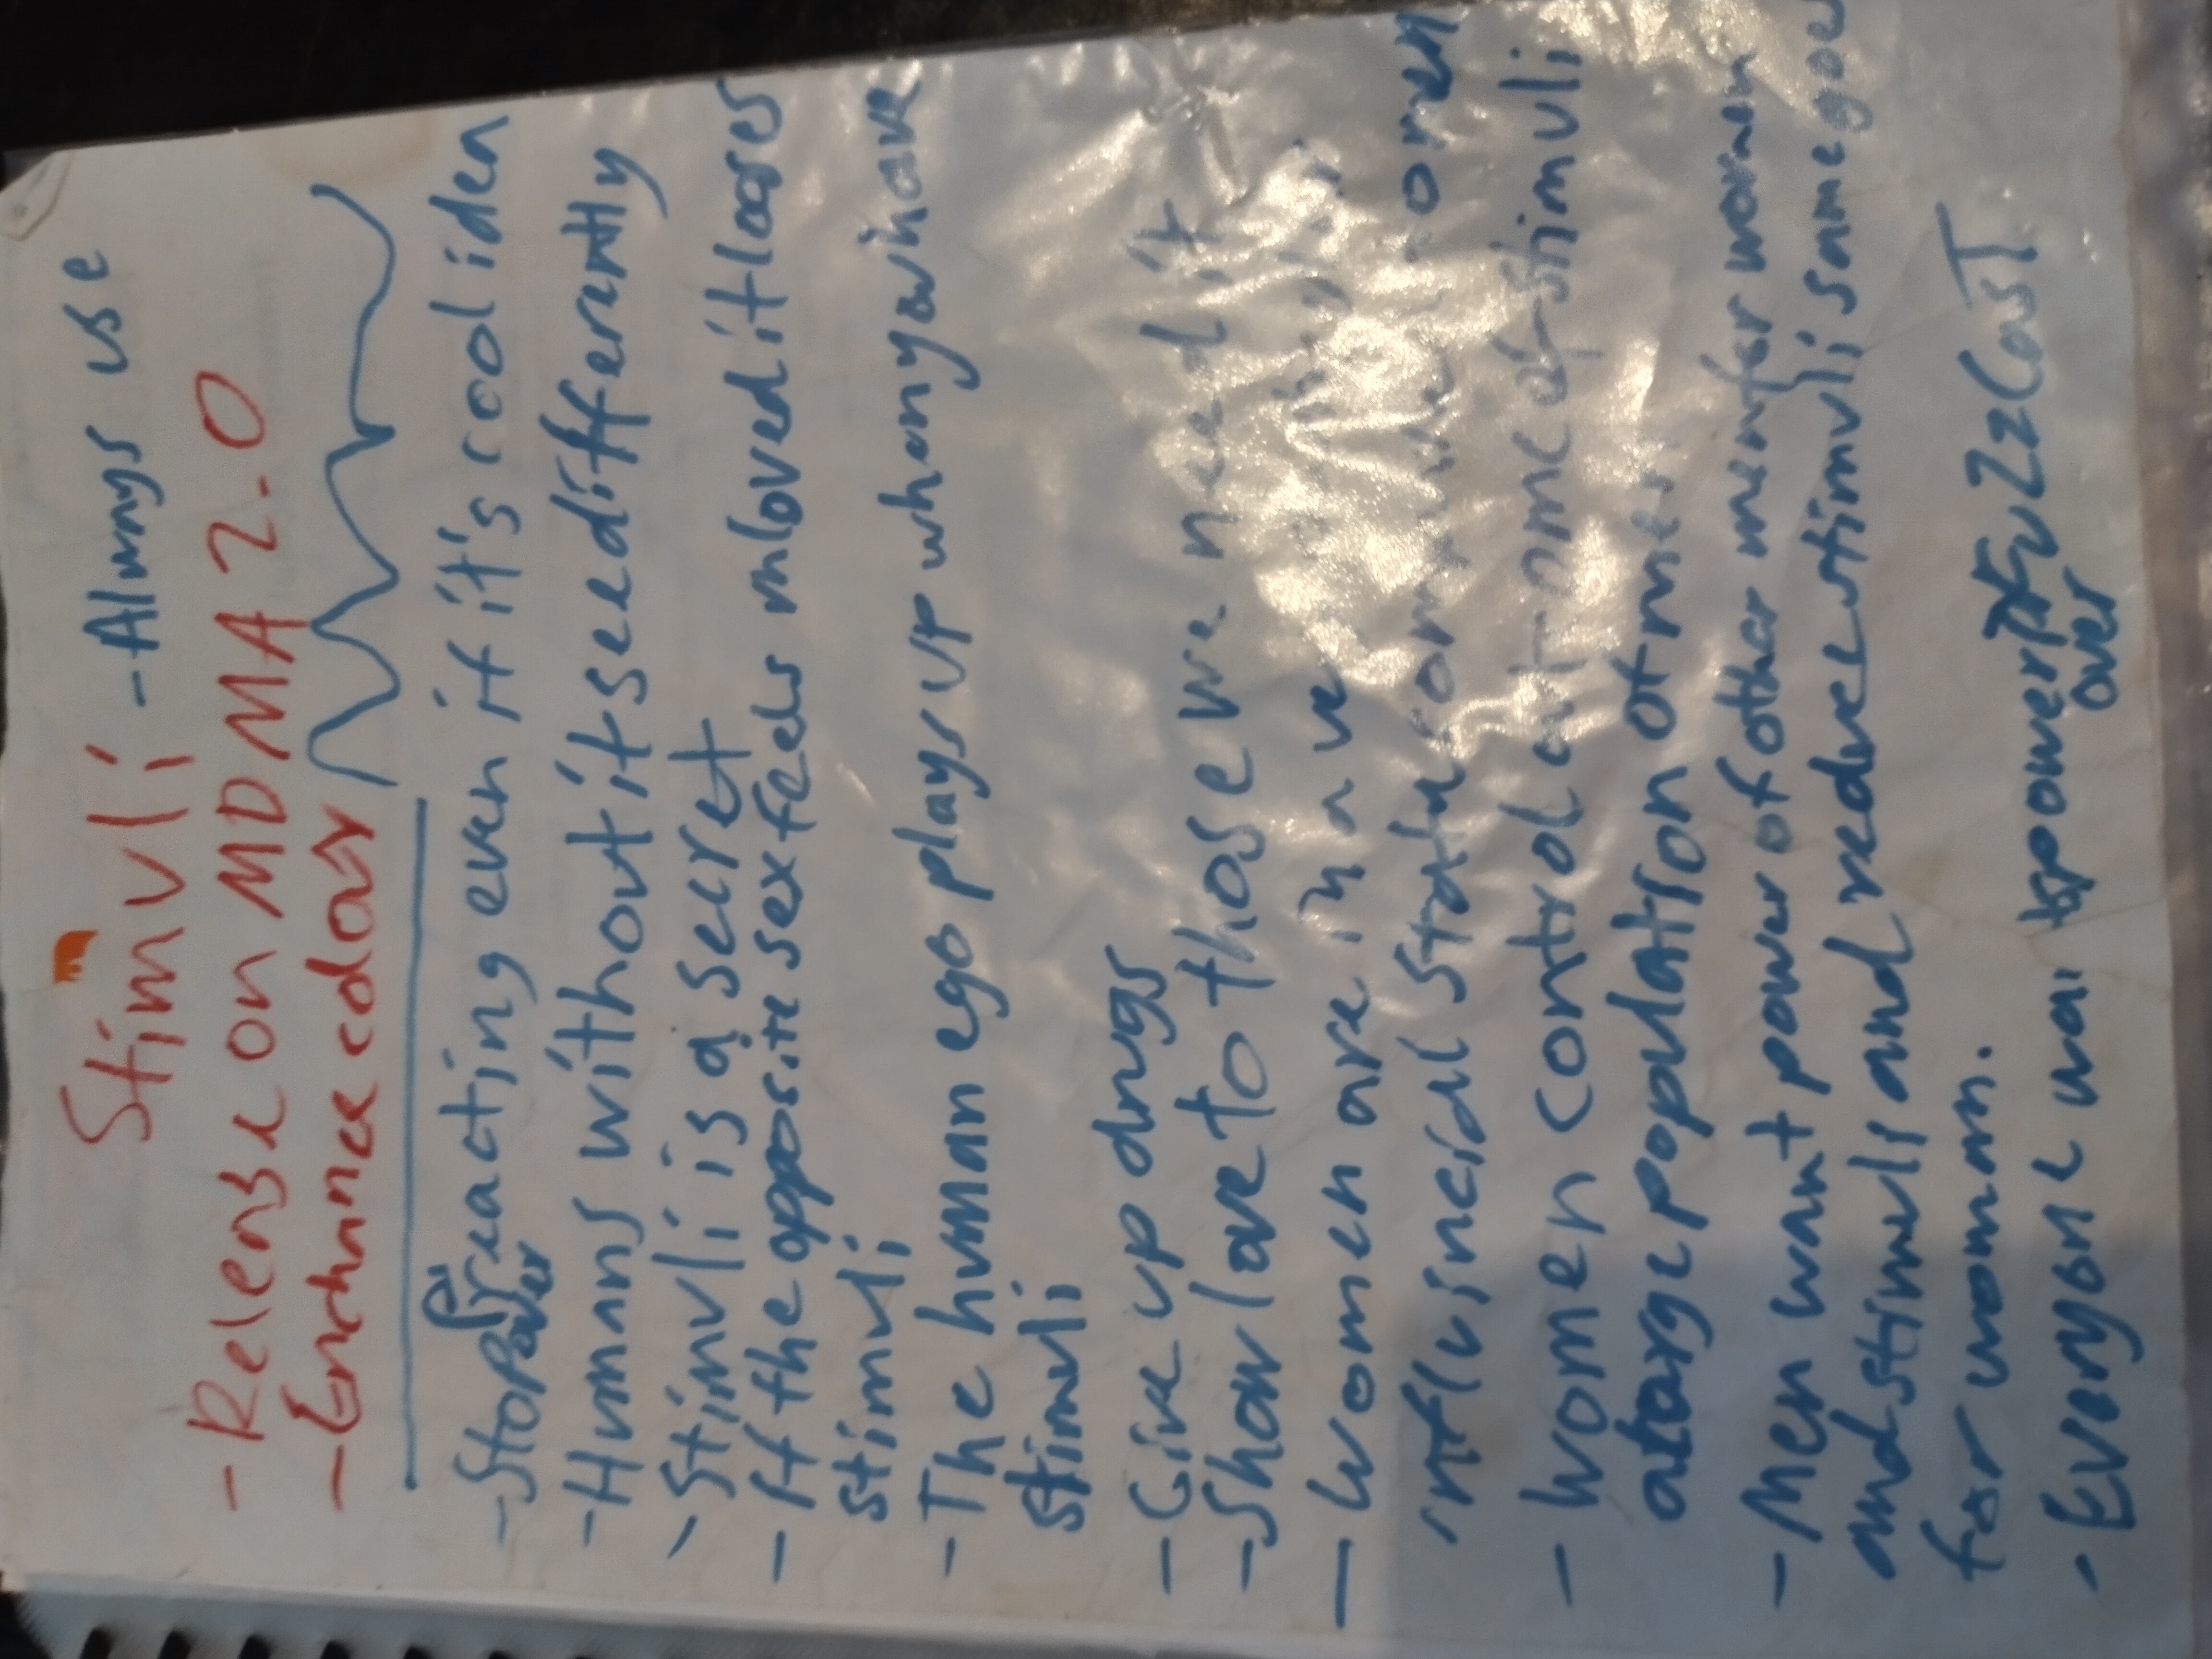 Stimuli - Always use
- Release on MDMA 2.0
- Enhance colour
- Stop reacting even if it's cool idea
over
- Humans without it see differently
- Stimuli is a secret
- If the opposite sex feels unloved it looses
stimuli
- The human ego plays up when you have
stimuli
- Give up drugs
- Show love to those we need it
- Women are in a
state
- Women control out ome of stimuli
population of
- Men want power of other men for women
and stimuli and reduce stimuli same goes
for woman.
- Everyone wan power
over